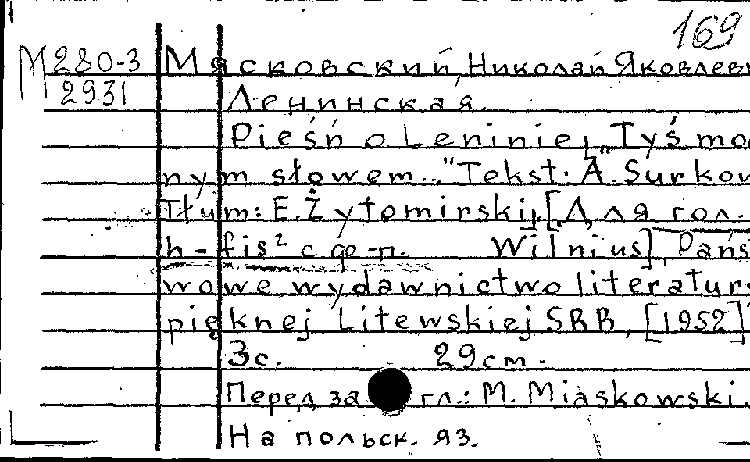 169
М280-3 Мясковский, Николай Яковлев
2931 Ленинская.
Pieśń o Leninie, „Tyś mo
nym słowem..." Tekst: A. Surkow
Tłum: E. Żytomirskij, [Для гол.
h - fis² с ф-п. Wilnius], Pańs
wowe wydawnictwo literatury
pięknej Litewskiej SRR, [1952]
3с. 29см.
Перед за гл.: M. Miaskowski.
На польск. яз.